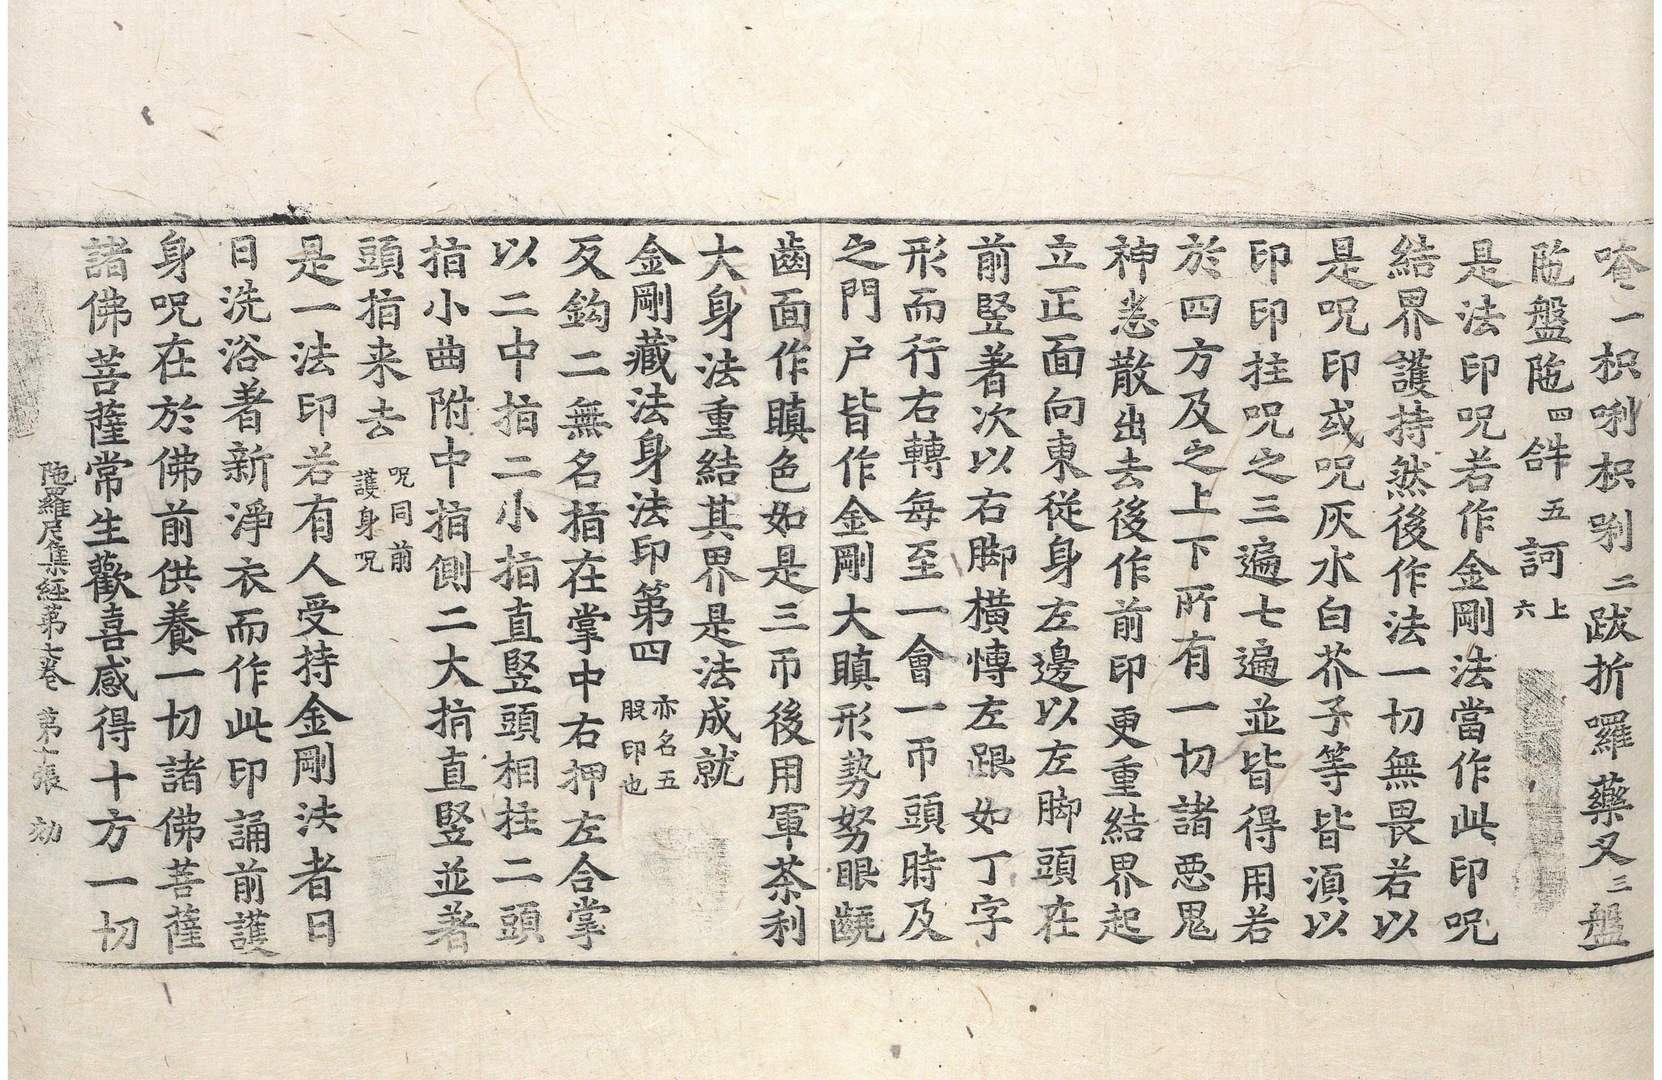 唵一枳唎枳唎二跋折囉藥叉三盤
陁盤陁四𤙖五訶上六
是法印呪若作金剛法當作此印呪
結界護持然後作法一切無畏若以
是呪印或呪灰水白芥子等皆湏以
印印拄呪之三遍七遍並皆得用若
於四方及之上下所有一切諸惡鬼
神悉散出去後作前印更重結界起
立正面向東從身左邊以左脚頭在
前竪著次以右脚橫慱左跟如丁字
形而行右轉每至一會一帀頭時及
之門户皆作金剛大瞋形勢努眼齩
齒面作瞋色如是三帀後用軍茶利
大身法重結其界是法成就
金剛藏法身法印第四亦名五股印也
反鈎二無名指在掌中右押左合掌
以二中指二小指直竪頭相拄二頭
指小曲附中指側二大指直竪並著
頭指来去呪同前護身呪
是一法印若有人受持金剛法者日
日洗浴著新淨衣而作此印誦前護
身呪在於佛前供養一切諸佛菩薩
諸佛菩薩常生歡喜感得十方一切
陁羅尼集經第七卷 第七張 劾